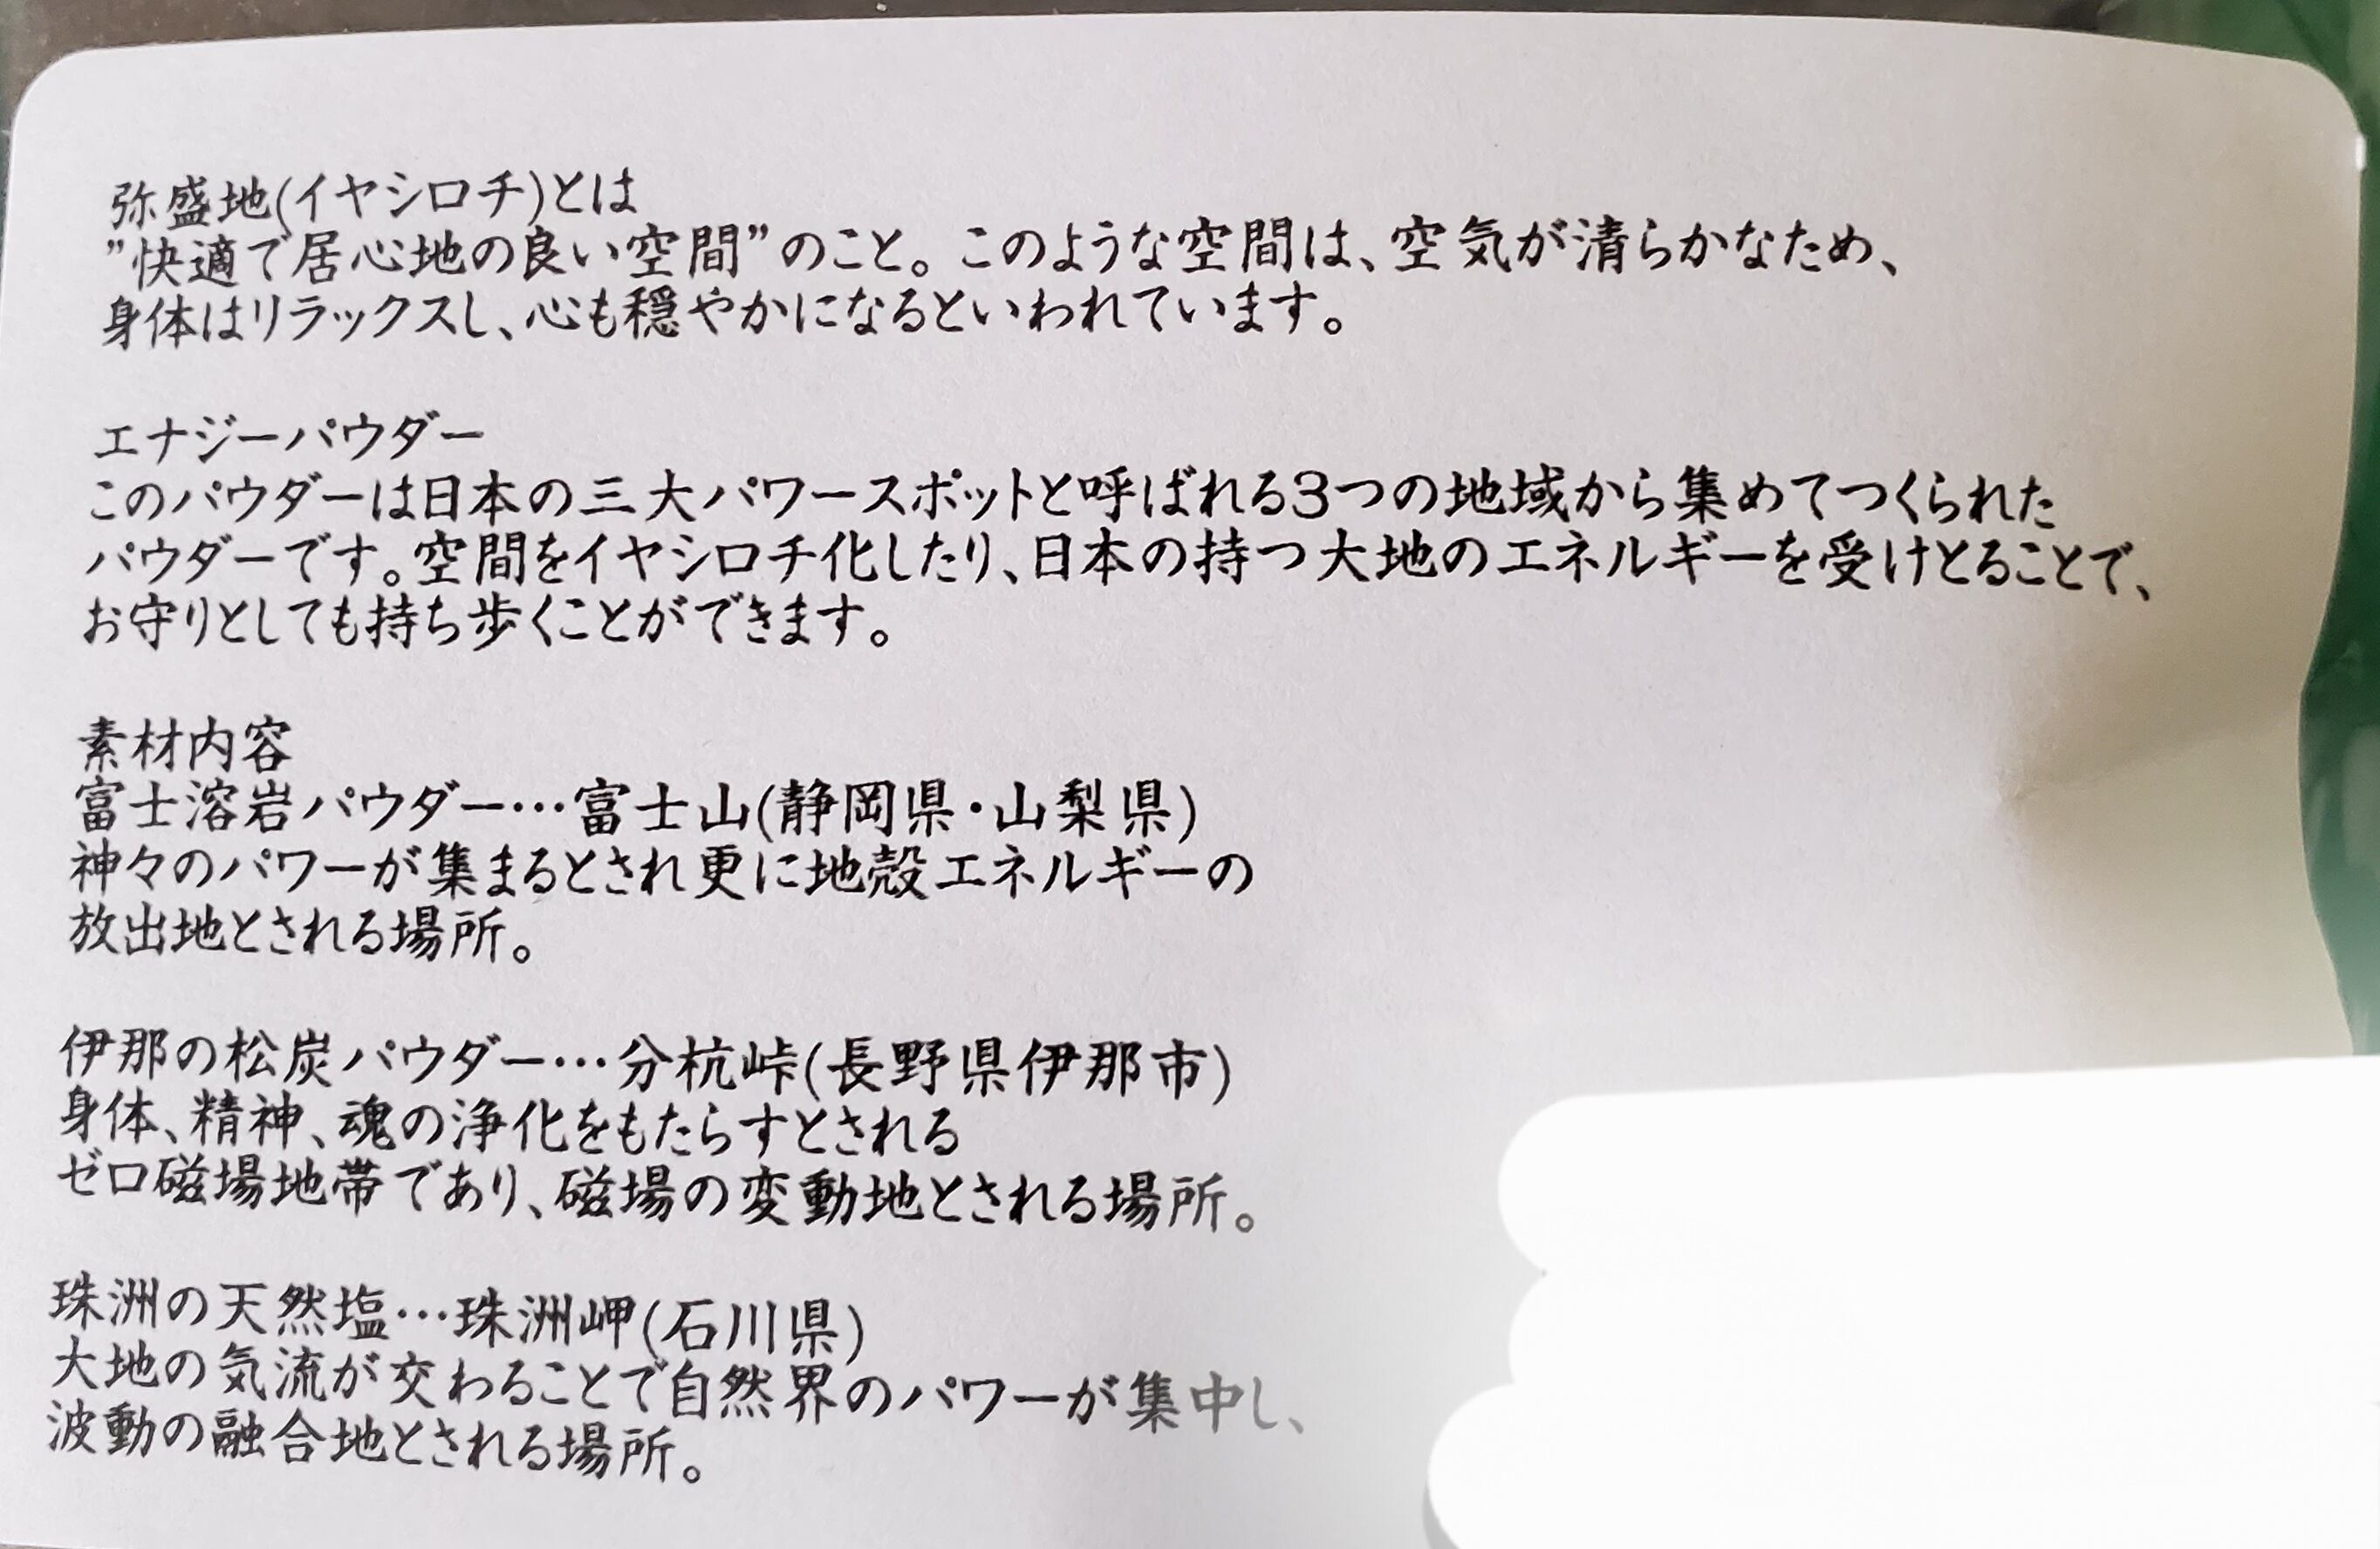 弥盛地(イヤシロチ)とは
”快適で居心地の良い空間”のこと。このような空間は、空気が清らかなため、
身体はリラックスし、心も穏やかになるといわれています。
エナジーパウダー
このパウダーは日本の三大パワースポットと呼ばれる3つの地域から集めてつくられた
パウダーです。空間をイヤシロチ化したり、日本の持つ大地のエネルギーを受けとることで、
お守りとしても持ち歩くことができます。
素材内容
富士溶岩パウダー…富士山(静岡県・山梨県)
神々のパワーが集まるとされ更に地殻エネルギーの
放出地とされる場所。
伊那の松炭パウダー…分杭峠(長野県伊那市)
身体、精神、魂の浄化をもたらすとされる
ゼロ磁場地帯であり、磁場の変動地とされる場所。
珠洲の天然塩…珠洲岬(石川県)
大地の気流が交わることで自然界のパワーが集中し、
波動の融合地とされる場所。